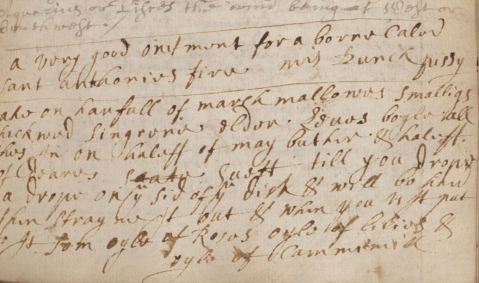 the wind being at West or
southwest
a very good ointment for a borne Called
sant anthonies fire mis Bunck pussy
take on hanfull of marsh mallowes smalligs
checkwed singrene elder leaves boyle all
thes in on halfe of may buther & halfe
of deares suett till you drope
a drope on ye sid of ye dish & will be
then strayne it out & when you it put
to it som oyle of Roses oyle of lilies &
oyle of Cammimill